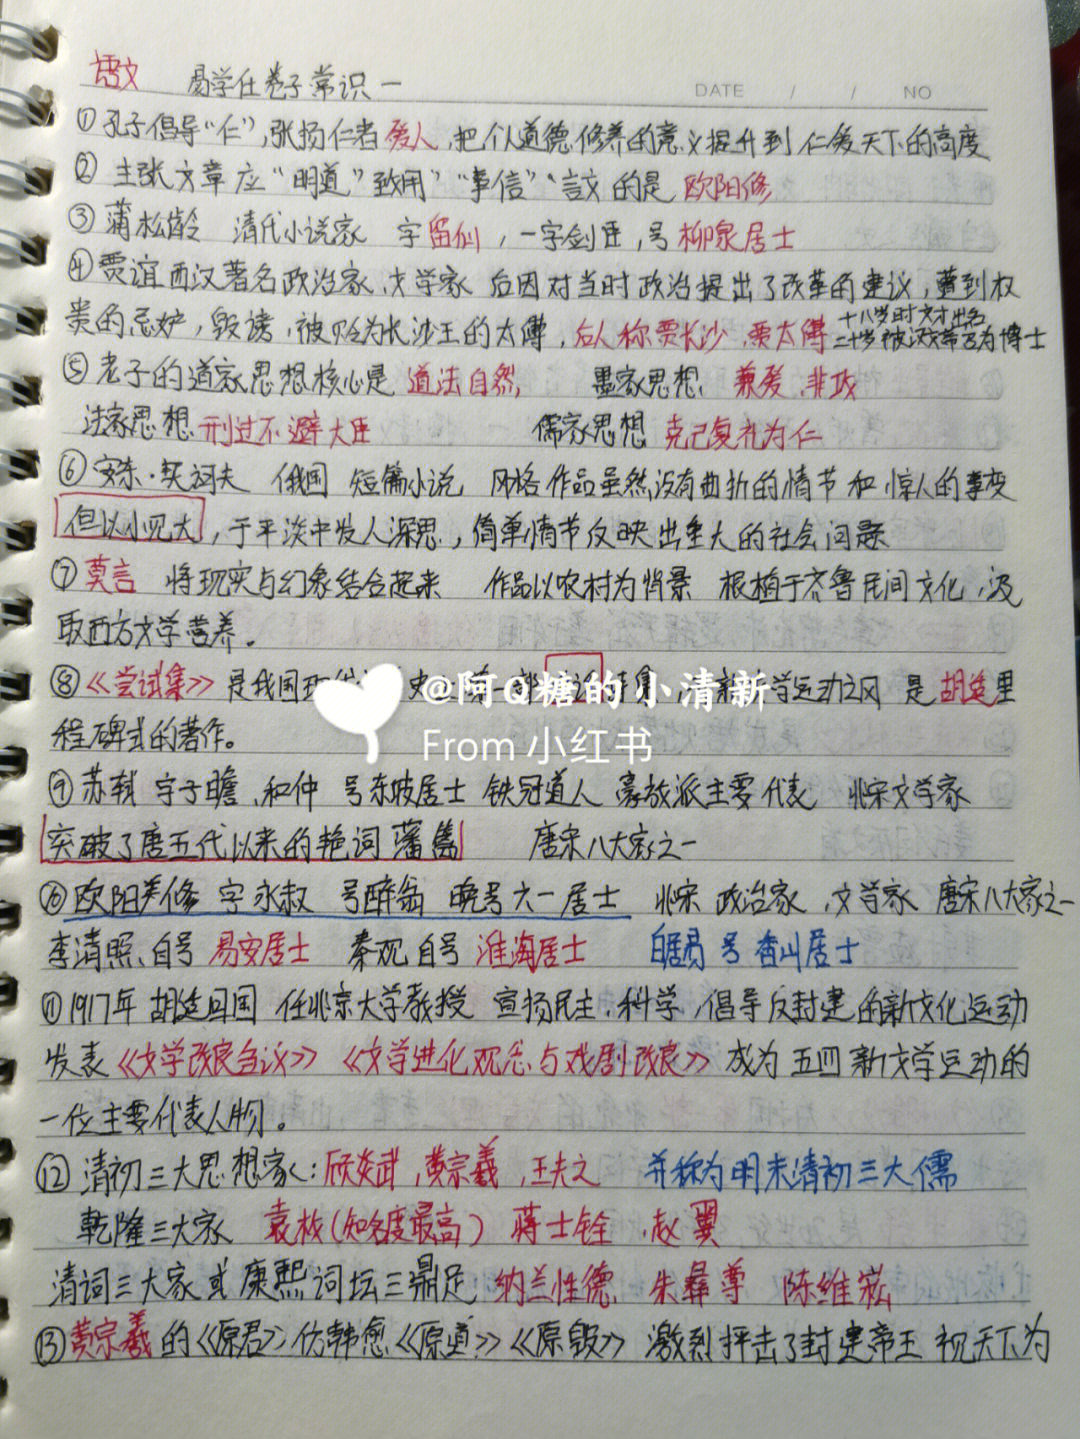 语文 易学仕卷子常识一
DATE / / NO
①孔子倡导“仁”,张扬仁者爱人,把个人道德修养的意义提升到仁爱天下的高度
② 主张文章应“明道”致用”“事信”“言文的是 欧阳修
③ 蒲松龄 清代小说家 字留仙,一字剑臣,号柳泉居士
④贾谊西汉著名政治家、文学家 后因对当时政治提出了改革的建议,遭到权
贵的忌妒,毁谤,被贬为长沙王的太傅,后人称贾长沙,贾太傅 十八岁时文才出名
二十岁被汉文帝召为博士
⑤老子的道家思想核心是 道法自然, 墨家思想 兼爱、非攻
法家思想 刑过不避大臣 儒家思想 克己复礼为仁
⑥安东·契诃夫 俄国 短篇小说 风格作品虽然没有曲折的情节和惊人的事变
但以小见大,于平淡中发人深思,简单情节反映出重大的社会问题
⑦莫言 将现实与幻象结合起来 作品以农村为背景 根植于齐鲁民间文化,汲
取西方文学营养。
⑧《尝试集》是我国现代 史 第一 学运动之风 是胡适里
@阿Q糖的小清新
From 小红书
程碑式的著作。
⑨苏轼 字子瞻、和仲 号东坡居士 铁冠道人 豪放派主要代表 北宋文学家
突破了唐五代以来的艳词藩篱 唐宋八大家之一
⑩欧阳修 字永叔 号醉翁 晚号六一居士 北宋 政治家、文学家 唐宋八大家之一
李清照、自号 易安居士 秦观 自号 淮海居士 白居易 号 香山居士
⑪1917年 胡适回国 任北京大学教授 宣扬民主、科学,倡导反封建的新文化运动
发表《文学改良刍议》《文学进化观念与戏剧改良》成为五四新文学运动的
一位主要代表人物。
⑫清初三大思想家:顾炎武,黄宗羲,王夫之 并称为明末清初三大儒
乾隆三大家 袁枚(知名度最高) 蒋士铨 赵翼
清词三大家或康熙词坛三鼎足 纳兰性德 朱彝尊 陈维崧
⑬黄宗羲的《原君》仿韩愈《原道》《原毁》 激烈抨击了封建帝王 视天下为